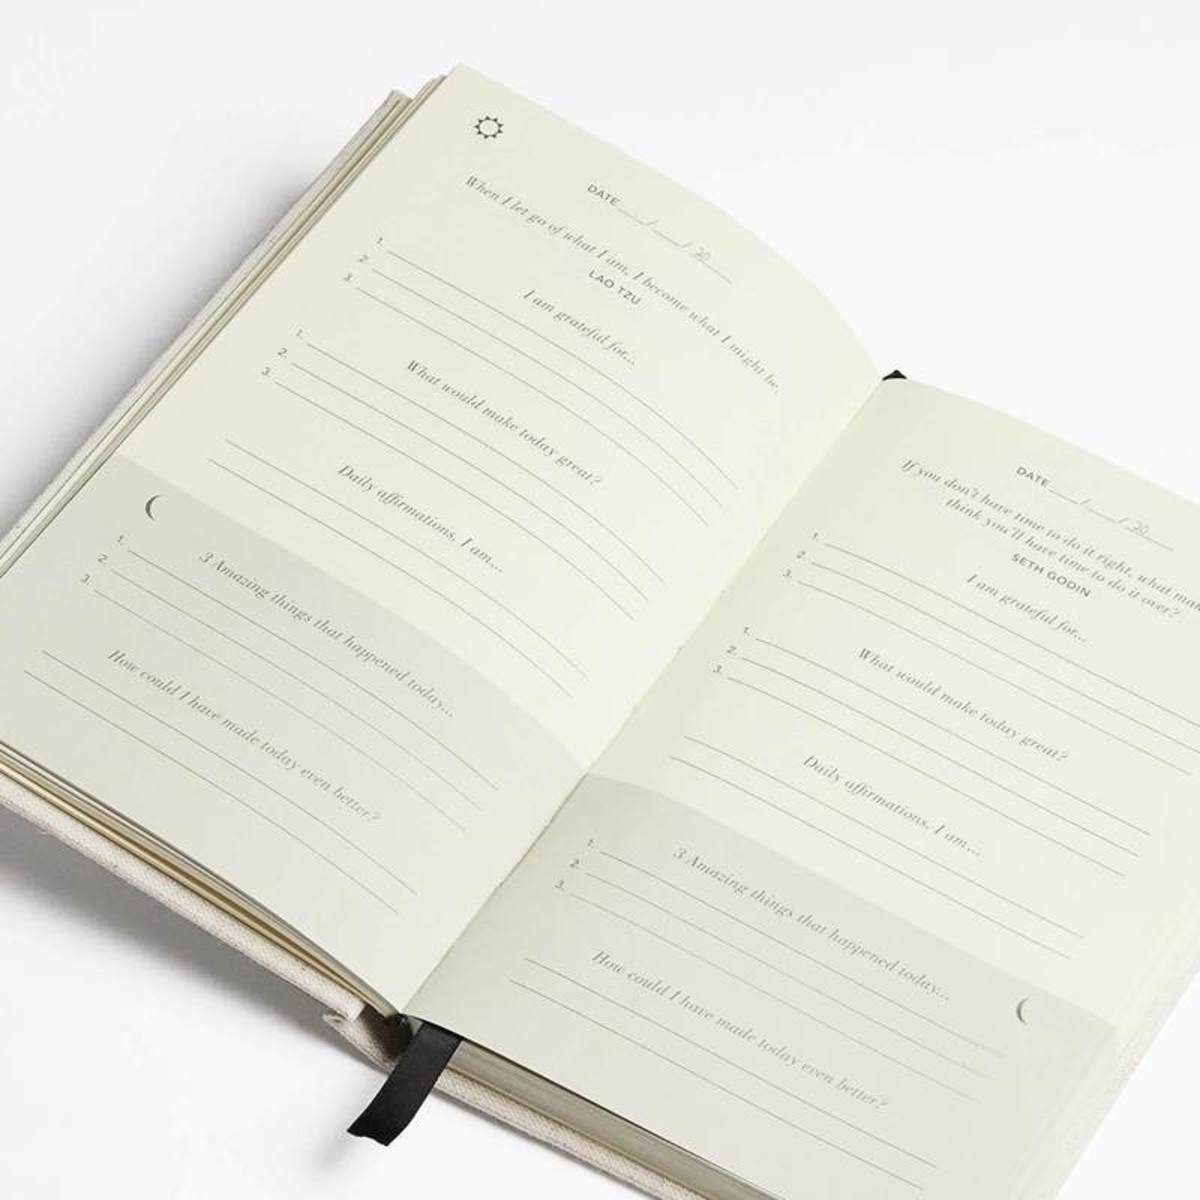 DATE__/__/20__
When I let go of what I am, I become what I might be.
LAO TZU
I am grateful for...
1.
2.
3.
What would make today great?
1.
2.
3.
Daily affirmations. I am...
3 Amazing things that happened today...
1.
2.
3.
How could I have made today even better?
DATE__/__/20__
If you don't have time to do it right, what
think you'll have time to do it over?
SETH GODIN
I am grateful for...
1.
2.
3.
What would make today great?
1.
2.
3.
Daily affirmations. I am...
3 Amazing things that happened today...
1.
2.
3.
How could I have made today even better?